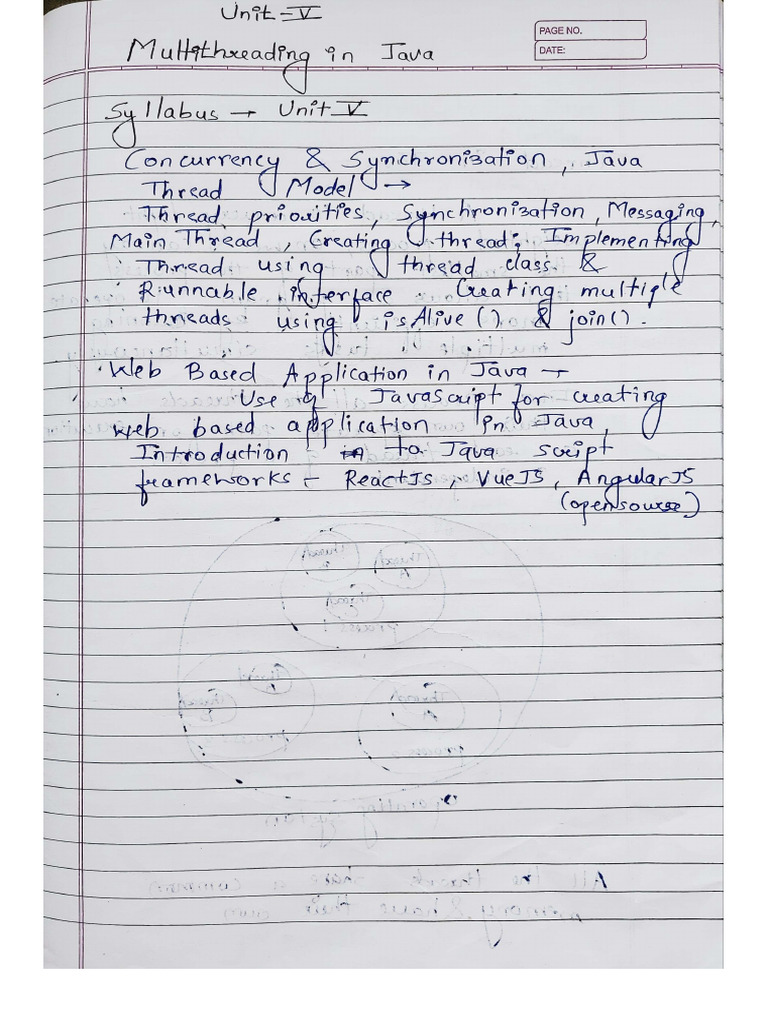 Unit - V
PAGE NO.
Multithreading in Java
DATE:
Syllabus → Unit V
Concurrency & Synchronization, Java
Thread Model →
Thread priorities, Synchronization, Messaging,
Main Thread, Creating thread; Implementing
Thread using thread class &
Runnable interface Creating multiple
threads using isAlive() & join().
Web Based Application in Java →
Use of JavaScript for creating
web based application in Java,
Introduction to Java script
frameworks - ReactJS, VueJS, AngularJS
(opensource)